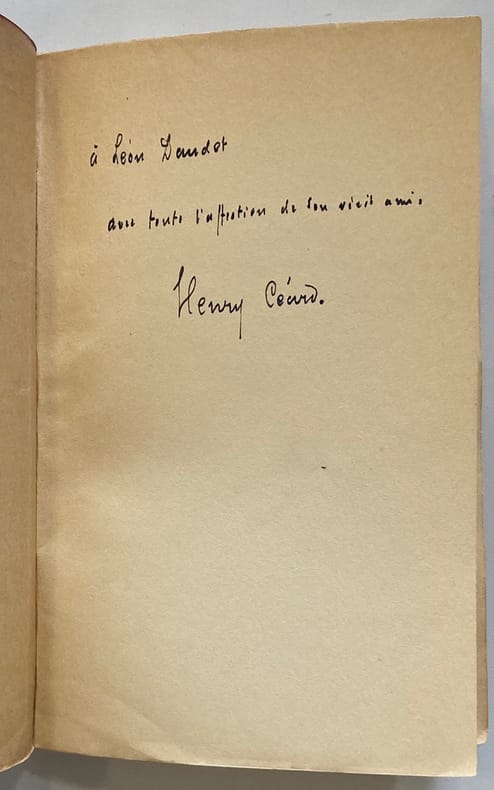 à Léon Daudet
avec toute l'affection de son vieil ami.
Henry Céard.